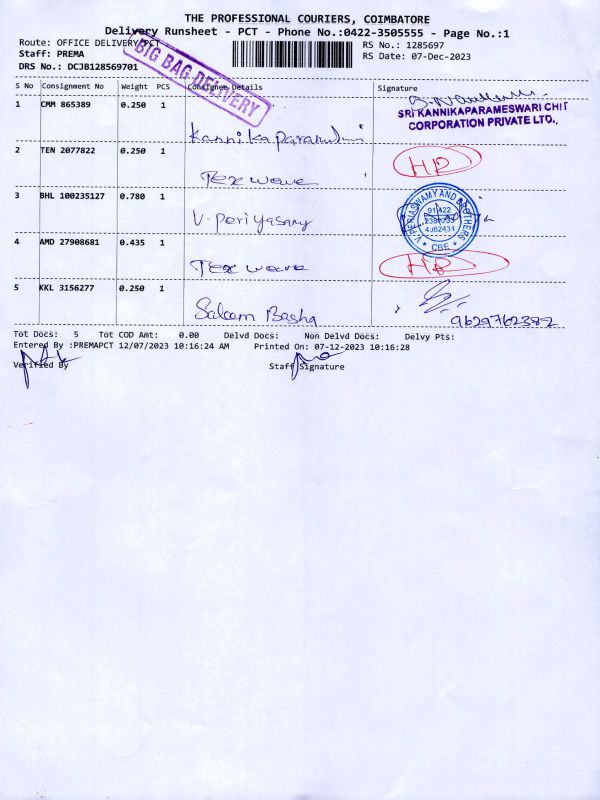 THE PROFESSIONAL COURIERS, COIMBATORE
Delivery Runsheet - PCT - Phone No.:0422-3505555 - Page No.:1
Route: OFFICE DELIVERY PCT
RS No.: 1285697
Staff: PREMA
RS Date: 07-Dec-2023
DRS No.: DCJB128569701
BIG BAG DELIVERY
S No Consignment No Weight PCS Consignee Details Signature
1 CMM 865389 0.250 1
SRI KANNIKAPARAMESWARI CHIT
CORPORATION PRIVATE LTD.,
2 TEN 2077822 0.250 1
Tex wave
HP
3 BHL 100235127 0.780 1
V. Periyasamy
V. PERIASWAMY AND BROTHERS
CBE
4 AMD 27908681 0.435 1
Tex wave
HP
5 KKL 3156277 0.250 1
Saleem Basha
9629762382
Tot Docs: 5 Tot COD Amt: 0.00 Delvd Docs: Non Delvd Docs: Delvy Pts:
Entered By :PREMAPCT 12/07/2023 10:16:24 AM Printed On: 07-12-2023 10:16:28
Verified By Staff Signature